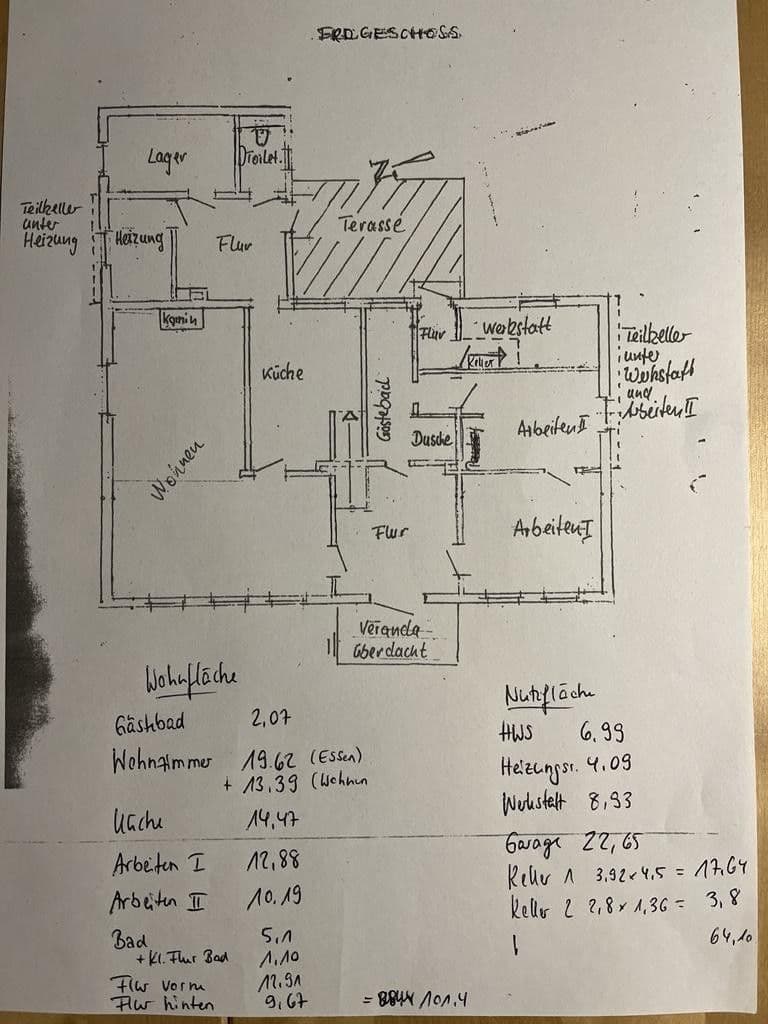 ERDGESCHOSS
Lager
Toilet.
Z
Teilkeller
unter
Heizung
Heizung
Flur
Terasse
Kamin
Küche
Gästebad
Flur
Werkstatt
Keller
Teilkeller
unter
Werkstatt
und
Arbeiten II
Dusche
Arbeiten II
Wohnen
Flur
Arbeiten I
Veranda
überdacht
Wohnfläche
Gästbad 2,07
Wohnzimmer 19.62 (Essen)
+ 13,39 (Wohnen
Küche 14,47
Arbeiten I 12,88
Arbeiten II 10.19
Bad 5,1
+ Kl. Flur Bad 1,10
Flur vorn 12,91
Flur hinten 9,67 = 101.4
Nutzfläche
HWS 6,99
Heizungsr. 4.09
Werkstatt 8,93
Garage 22,65
Keller 1 3,92 x 4,5 = 17,64
Keller 2 2,8 x 1,36 = 3,8
64,10